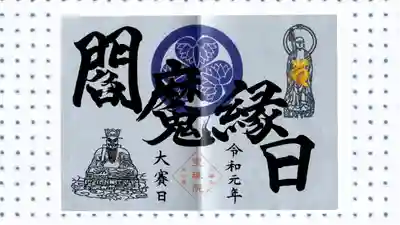 閻魔縁日
令和元年
大賽日